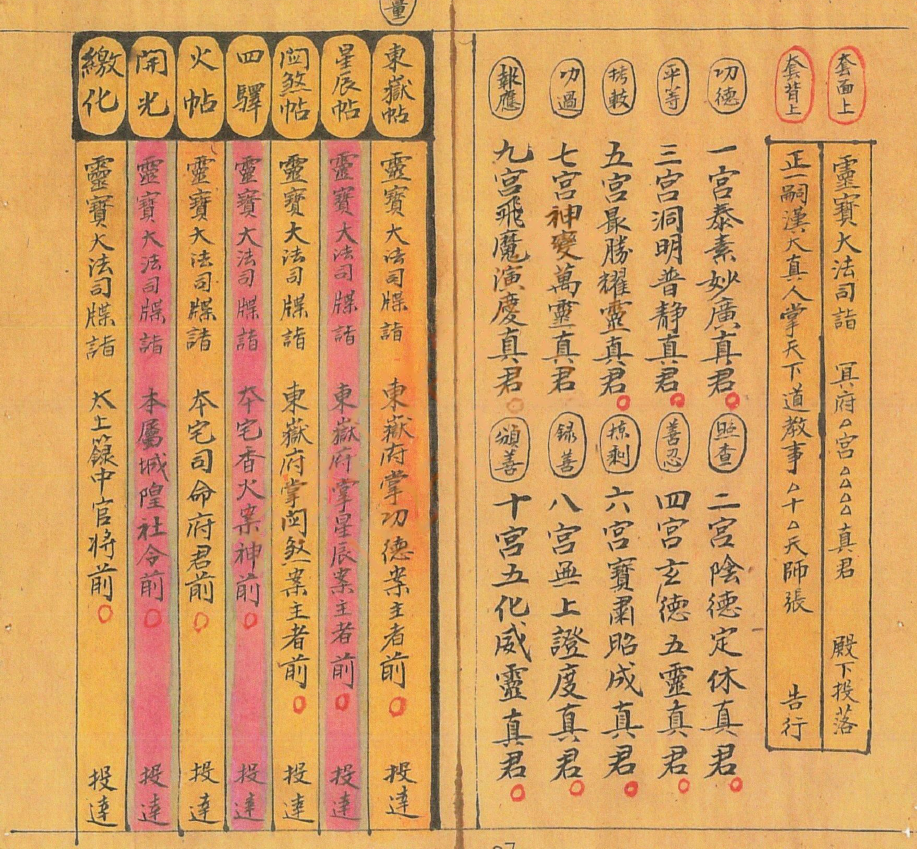 量
套面上
靈寶大法司詣　冥府△宮△△△△真君　殿下投落
套背上
正一嗣漢大真人掌天下道教事△十△天師張　告行
功德
一宮泰素妙廣真君○
照查
二宮陰德定休真君○
平等
三宮洞明普靜真君○
善忍
四宮玄德五靈真君○
拷較
五宮最勝耀靈真君○
掠剩
六宮寶肅昭成真君○
功過
七宮神變萬靈真君
録善
八宮無上證度真君○
報應
九宮飛魔演慶真君○
頒善
十宮五化威靈真君○
東嶽帖
靈寶大法司牒詣　東嶽府掌功德案主者前○　投達
星辰帖
靈寶大法司牒詣　東嶽府掌星辰案主者前○　投達
関煞帖
靈寶大法司牒詣　東嶽府掌関煞案主者前○　投達
四驛
靈寶大法司牒詣　本宅香火案神前○　投達
火帖
靈寶大法司牒詣　本宅司命府君前○　投達
開光
靈寶大法司牒詣　本屬城隍社令前○　投達
繳化
靈寶大法司牒詣　太上籙中官将前○　投達